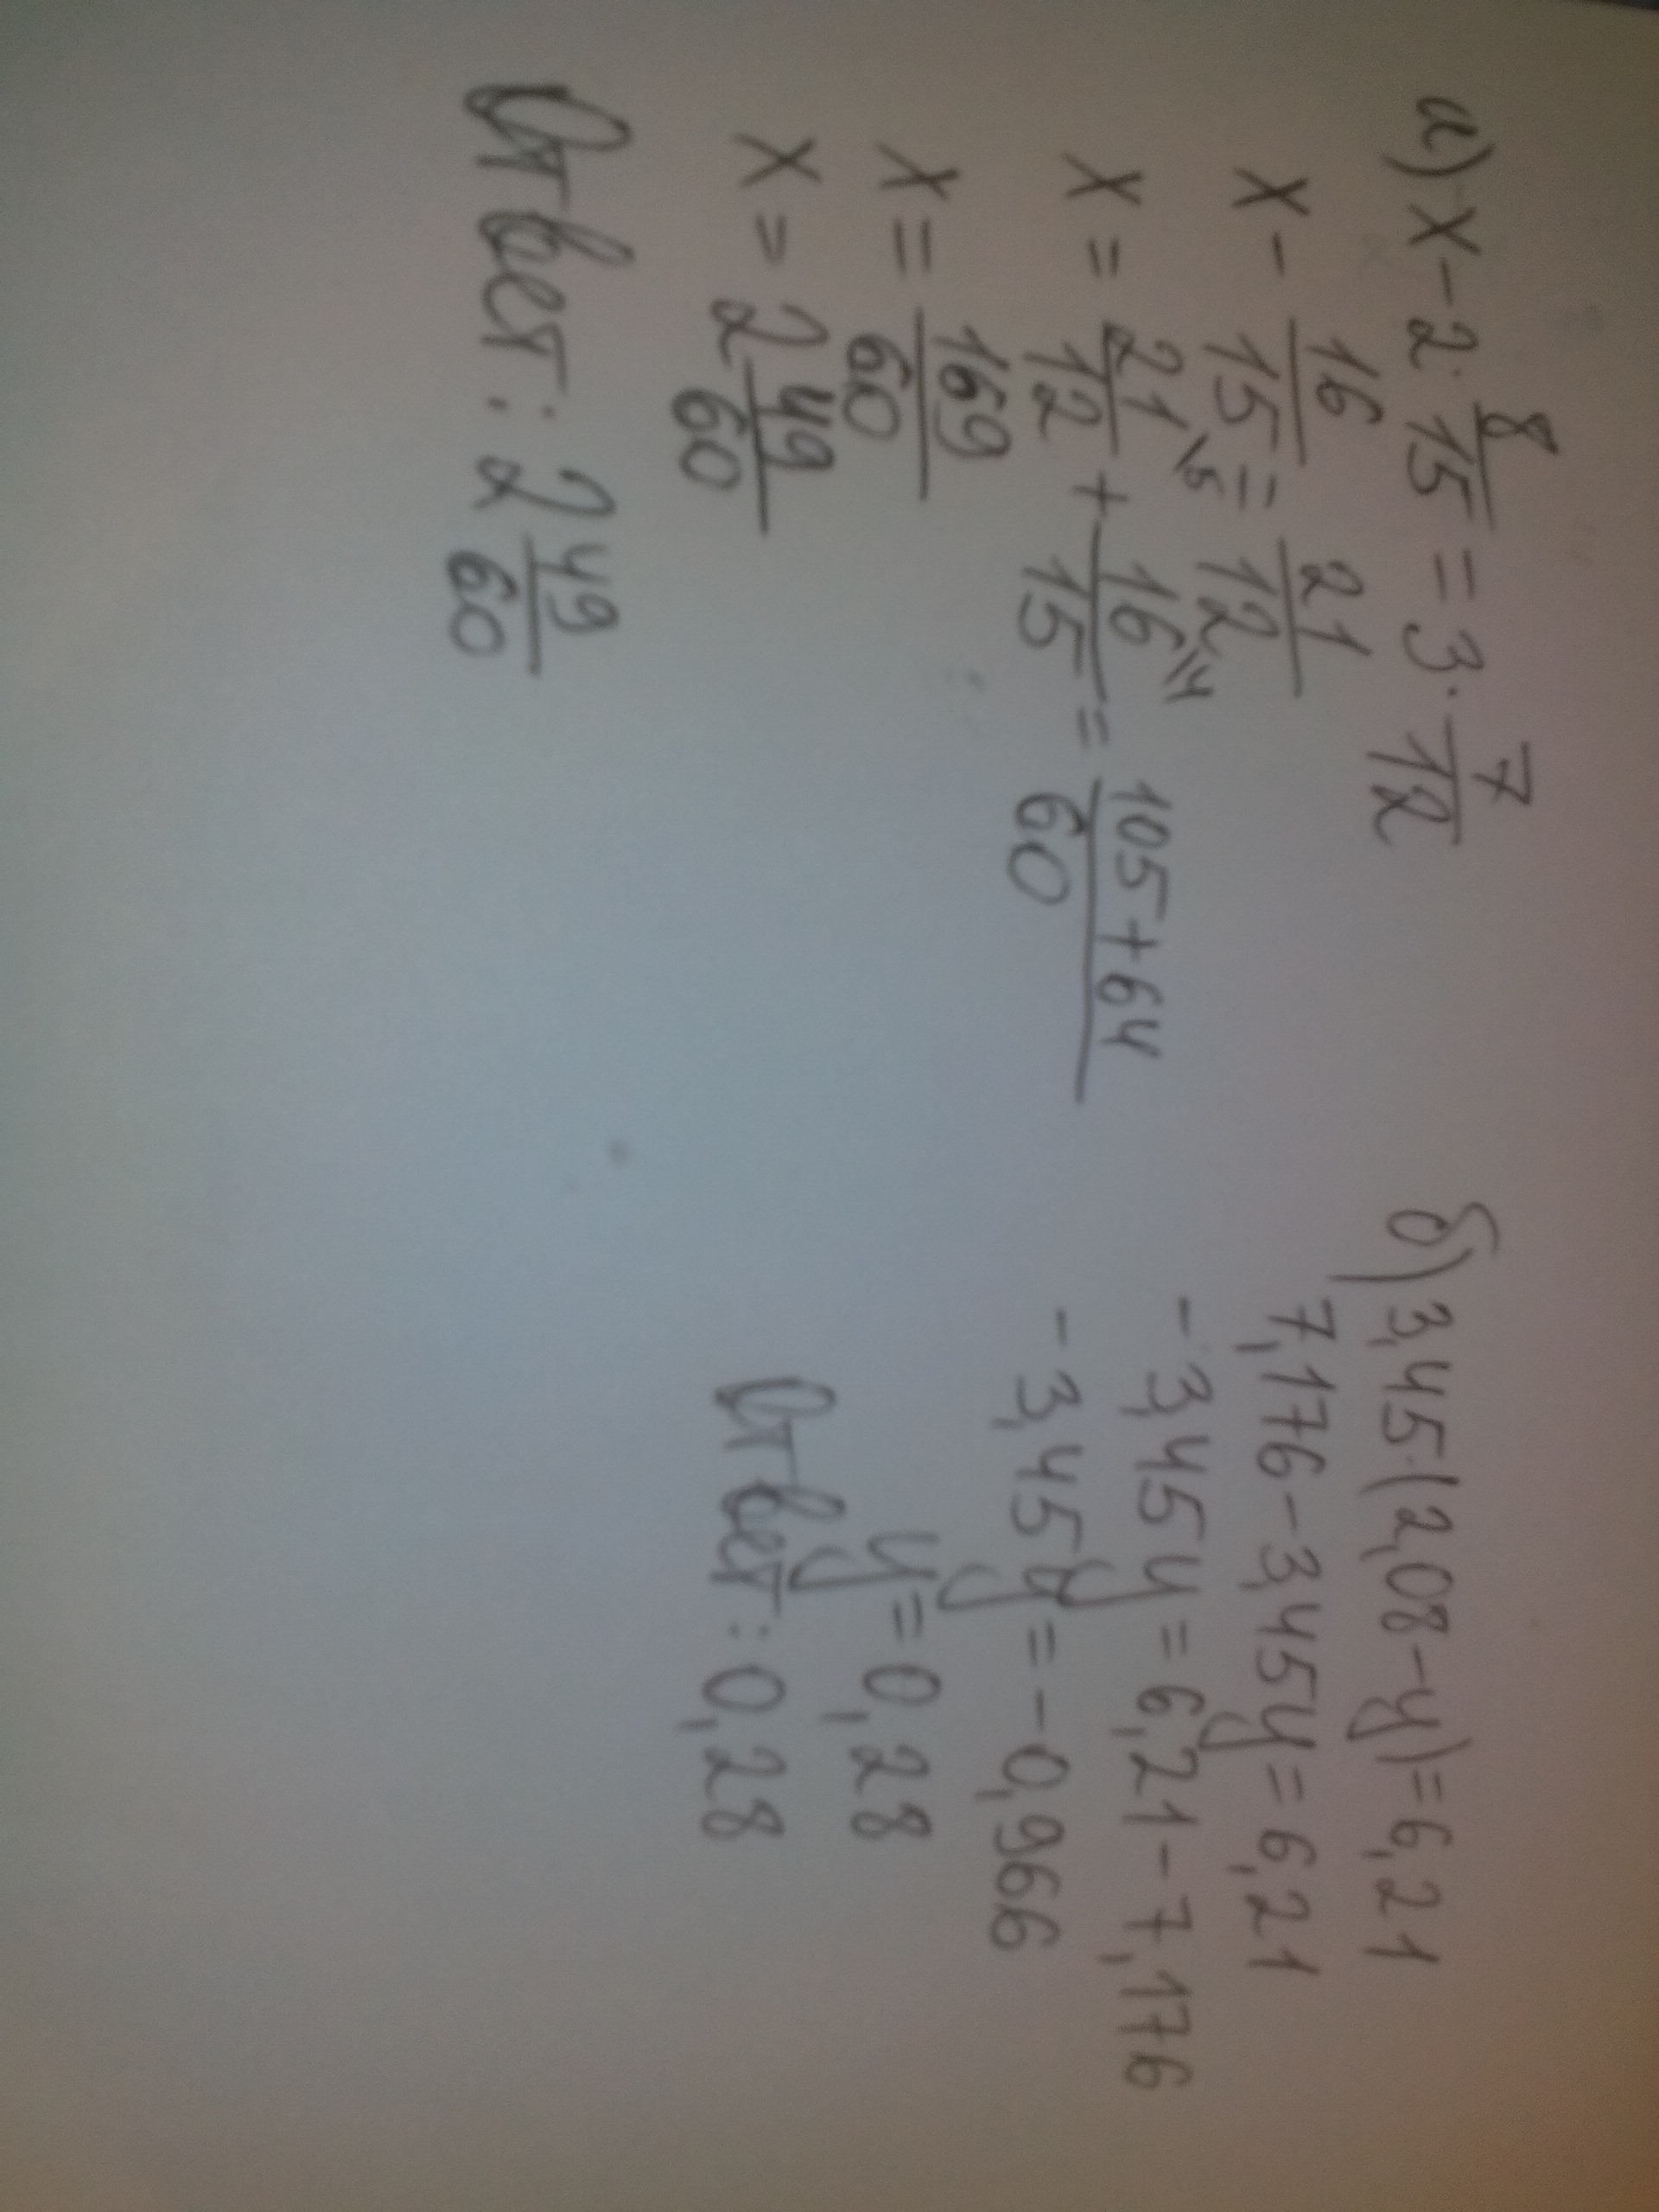 а) x - 2 · 8/15 = 3 · 7/12
x - 16/15 = 21/12
x = 21/12 \5 + 16/15 \4 = 105+64/60
x = 169/60
x = 2 49/60
Ответ: 2 49/60
б) 3,45·(2,08-y)=6,21
7,176-3,45y=6,21
-3,45y=6,21-7,176
-3,45y=-0,966
y=0,28
Ответ: 0,28